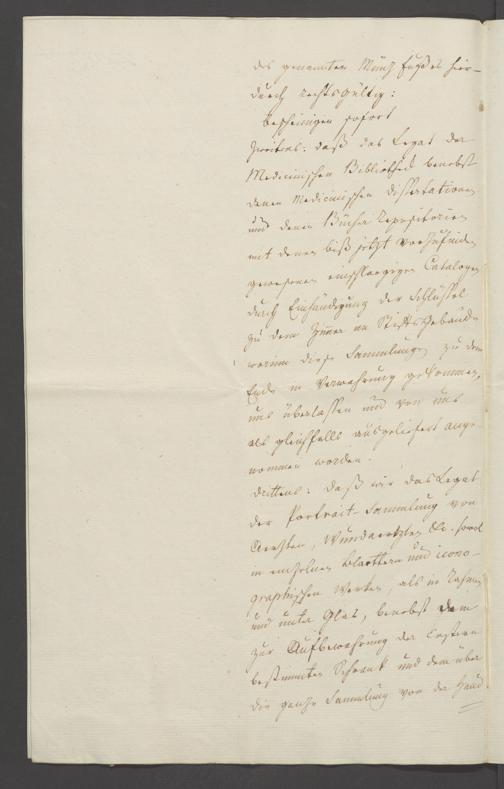 des genannten Münz Fußes hier-
durch rechtsgültig:
bescheinigen sofort
zweitens: daß das Legat der
Medicinischen Bibliothek benebst
denen Medicinischen Dissertationen
und denen Bücher Repositorien
mit denen biß jetzt vorzufinden
gewesenen einschlaegigen Catalogen
durch Einhändigung der Schlüssel
zu dem Zimer im Stiftsgebäude
worinn diese Sammlungen zu dem
Ende in Verwahrung gekommen,
uns überlassen und von uns
als gleichfalls ausgeliefert ange-
nommen worden.
drittens: daß wir das Legat
der Portrait-Sammlung von
Aerzten, Wundaerzten &c. sowol
in einzelnen Blaettern und icono-
graphischen Werken, als in Rahmen
und unter Glas, benebst dem
zur Aufbewahrung der Erstern
bestimmten Schrank und dem über
die ganze Sammlung von der Hand